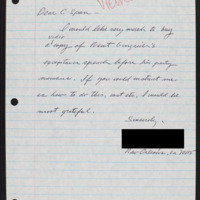 Dear C-Span -
I would like very much to buy
video
a copy of Brent Bozell's
acceptance speech before his party
. If you could instruct me
as how to do this, cost etc., I would be
most grateful.
Sincerely,
New Orleans, La 70115